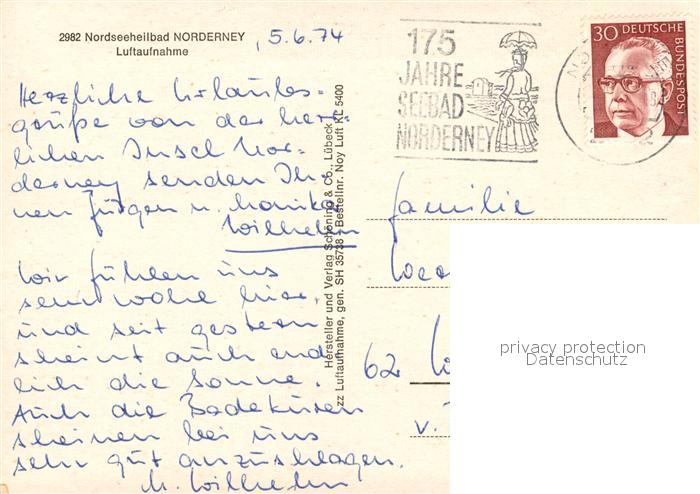 2982 Nordseeheilbad NORDERNEY
Luftaufnahme
5.6.74
175
JAHRE
SEEBAD
NORDERNEY
30 DEUTSCHE
BUNDESPOST
Herzliche Urlaubs-
grüße von der herr-
lichen Insel Nor-
derney senden Ih-
nen Jürgen u. Monika
Wilhelm
Wir fühlen uns
sehr wohl hier,
und seit gestern
scheint auch end
lich die Sonne.
Auch die Badekuren
scheinen bei uns
sehr gut anzuschlagen.
M. Wilhelm
Hersteller und Verlag Schöning & Co., Lübeck
zz Luftaufnahme, gen. SH 35738 - Bestellnr. Noy Luft KZ 5400
Familie
62
v.
privacy protection
Datenschutz